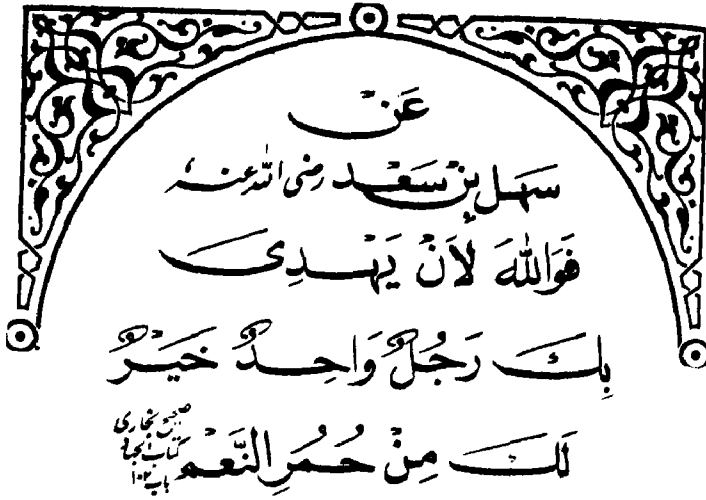 عَنْ
سَهْلِ بِنْ سَعَدْ رضی اللہ عنہ
فَوَاللّٰهَ لَاَنْ يَهْدِىَ
بِكَ رَجُلٌ وَاحِدٌ خَيْرٌ
لَكَ مِنْ حُمُرِ النَّعَمْ
صحیح بخاری
کتاب الجہاد
باب ۱۰۲